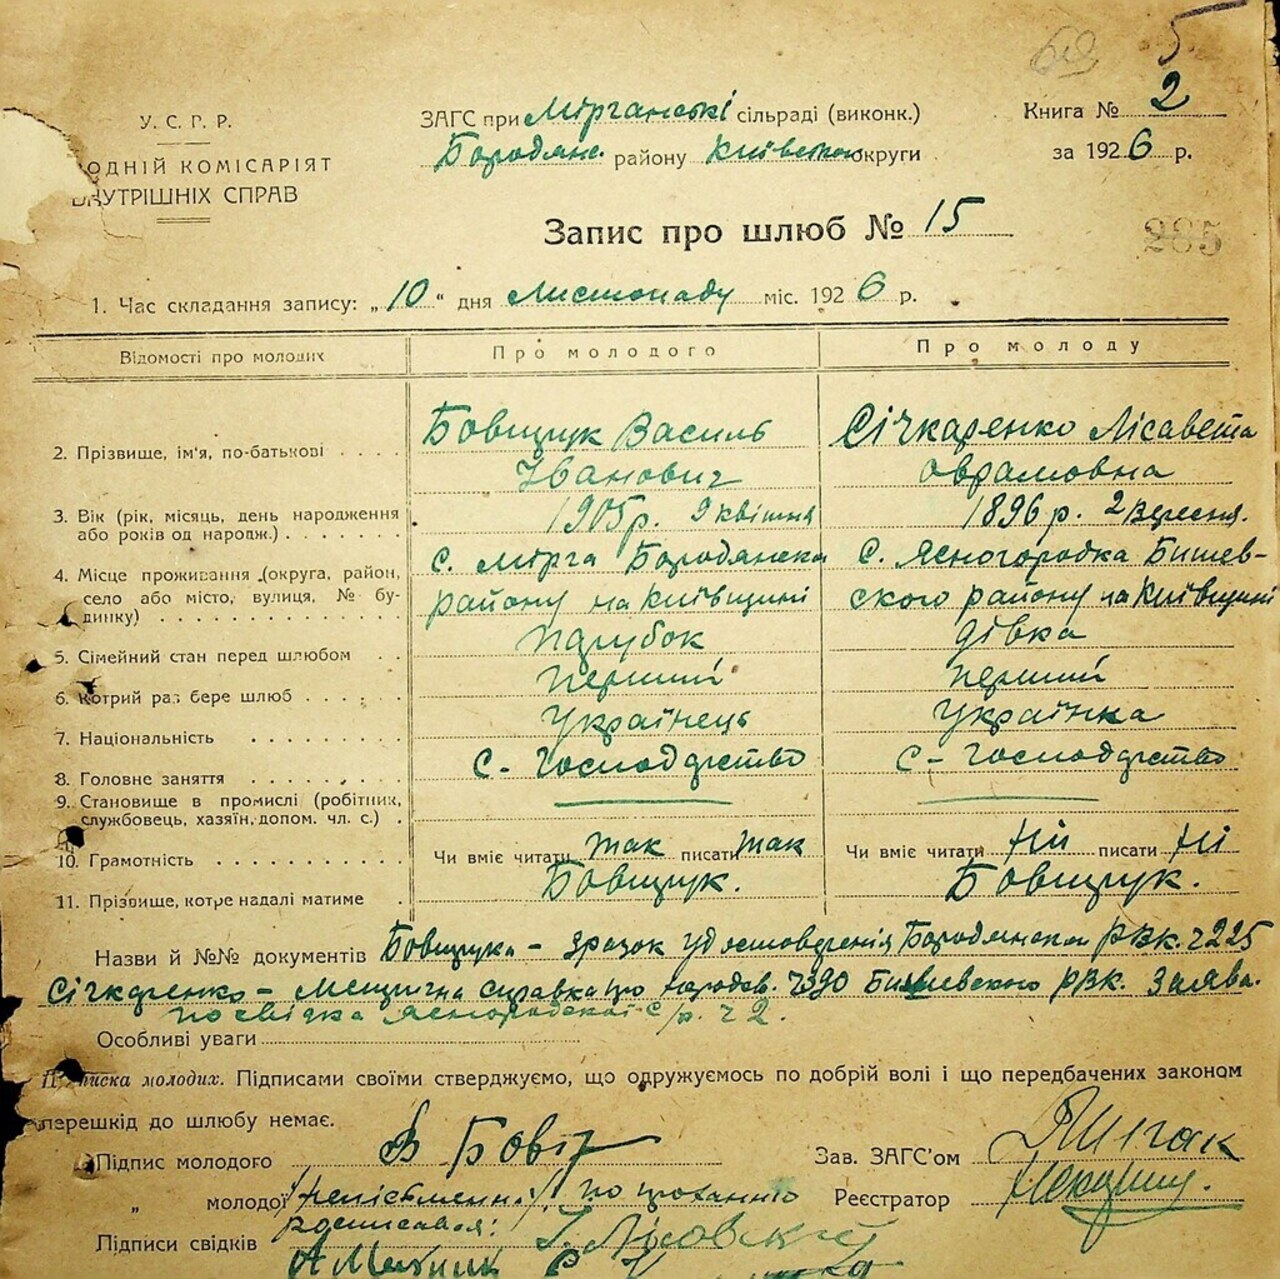 5
У. С. Р. Р.
ОДНІЙ КОМІСАРІЯТ
ВНУТРІШНІХ СПРАВ
ЗАГС при Мірганські сільраді (виконк.)
Бородянс. району Київської округи
Книга № 2
за 1926 р.
Запис про шлюб № 15
285
1. Час складання запису: „10“ дня Листопаду міс. 1926 р.
Відомості про молодих
Про молодого
Про молоду
2. Прізвище, ім'я, по-батькові
Бовщук Василь
Іванович
Січкаренко Лісавета
Оврамовна
3. Вік (рік, місяць, день народження
або років од народж.)
1905 р. 9 квітня
1896 р. 2 вересня.
4. Місце проживання (округа, район,
село або місто, вулиця, № бу-
динку)
с. Мірга Бородянска
району на Київщині
с. Ясногородка Бишев-
ского району на Київщині
5. Сімейний стан перед шлюбом
парубок
дівка
6. Котрий раз бере шлюб
перший
перший
7. Національність
Українець
Українка
8. Головне заняття
С-господарство
С-господарство
9. Становище в промислі (робітник,
службовець, хазяїн, допом. чл. с.)
10. Грамотність
Чи вміє читати так писати так
Чи вміє читати ні писати ні
11. Прізвище, котре надалі матиме
Бовщук.
Бовщук.
Назви й №№ документів Бовщука - зразок удостоверенія РВК. ч 225
Січкаренко - справка про Бишевского РВК. Заява.
посвідка Ясногородской с/р. ч 2.
Особливі уваги
Підписка молодих. Підписами своїми стверджуємо, що одружуємось по добрій волі і що передбачених законом
перешкід до шлюбу немає.
Підпис молодого В Бовщ
Зав. ЗАГС'ом
„ молодої по проханню
Реєстратор
росписався:
Підписи свідків